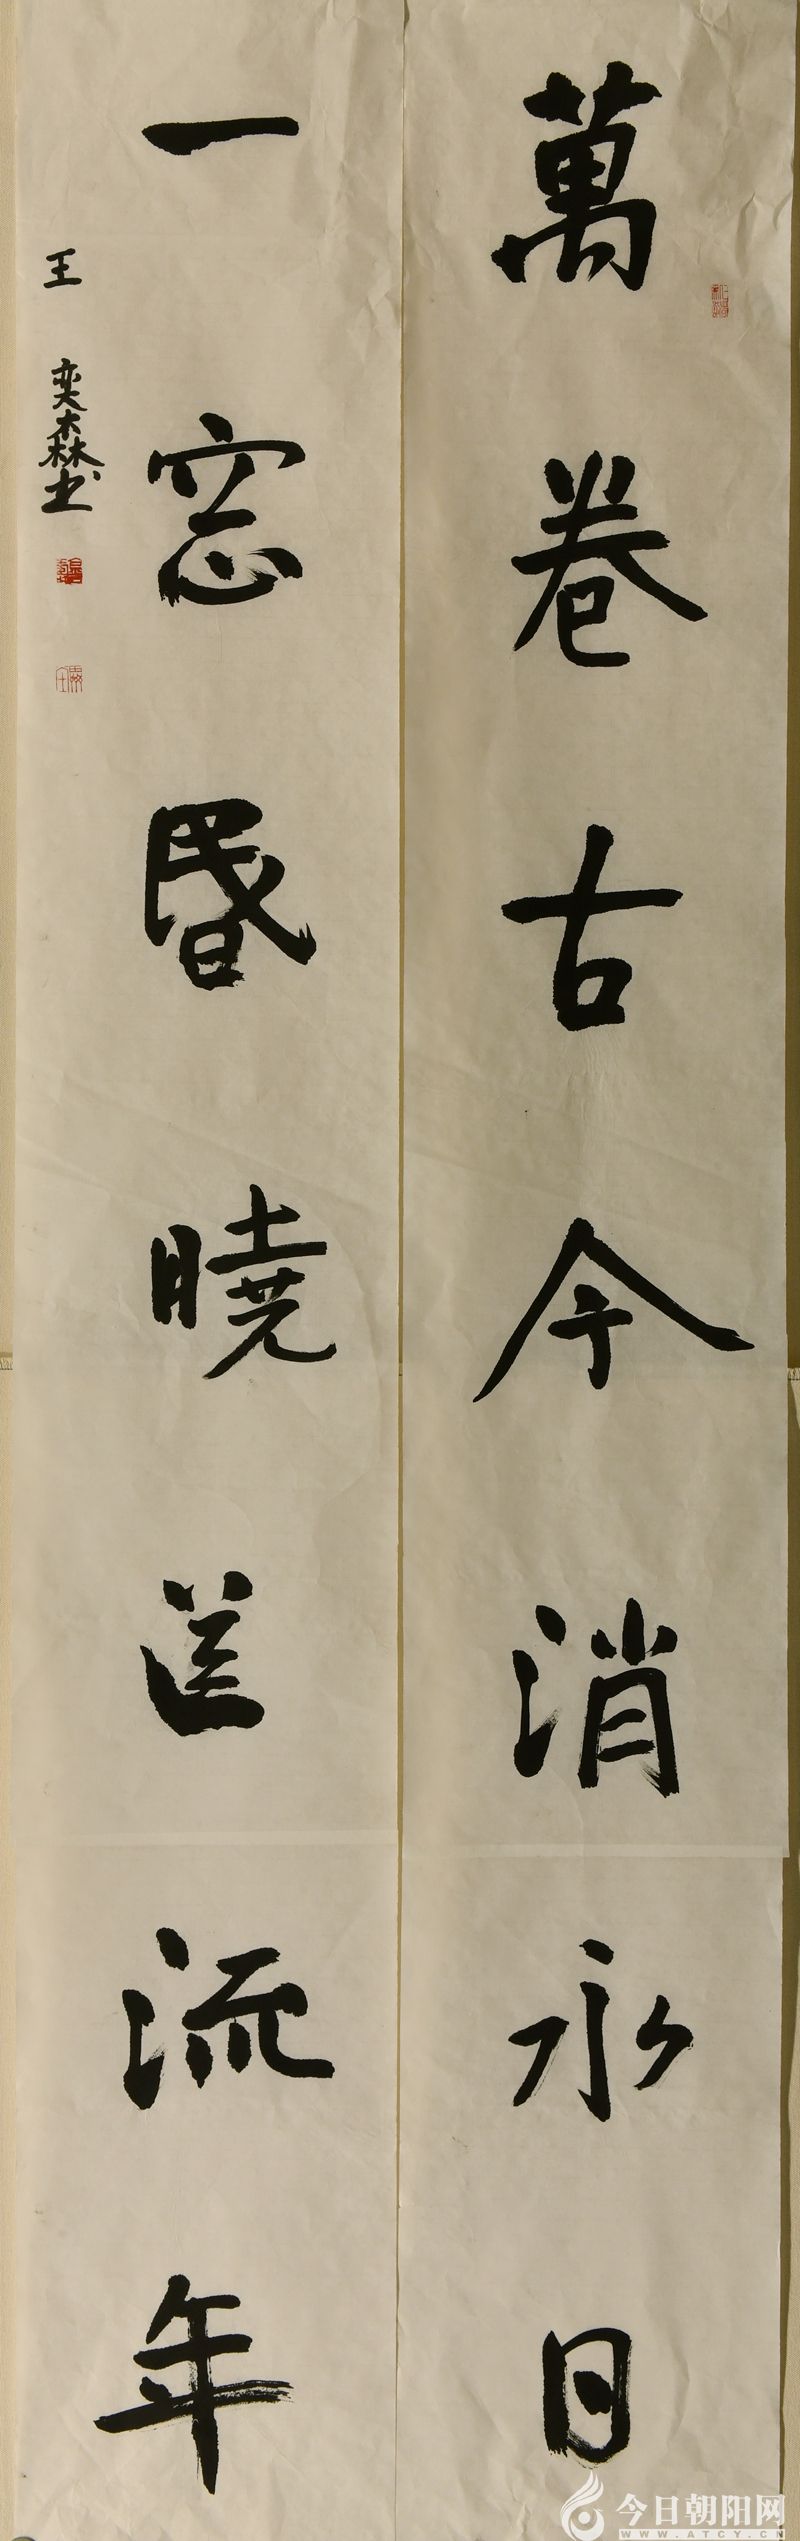 萬卷古今消永日
一窓昬曉送流年
王奕森书
今日朝阳网
WWW.ATCY.CN